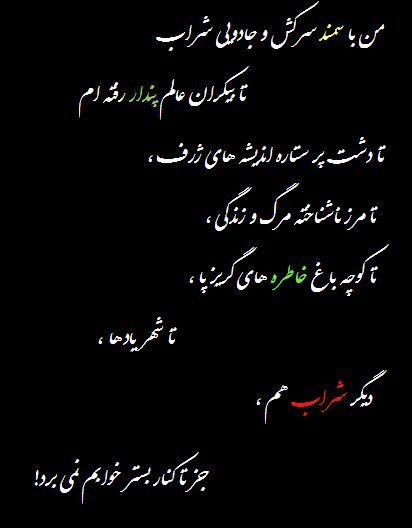 من با سمند سرکش و جادویی شراب
تا بیکران عالم پندار رفته ام
تا دشت پر ستاره اندیشه های ژرف ،
تا مرز ناشناخته مرگ و زندگی ،
تا کوچه باغ خاطره های گریز پا ،
تا شهر یادها ،
دیگر شراب هم ،
جز تا کنار بستر خوابم نمی برد!